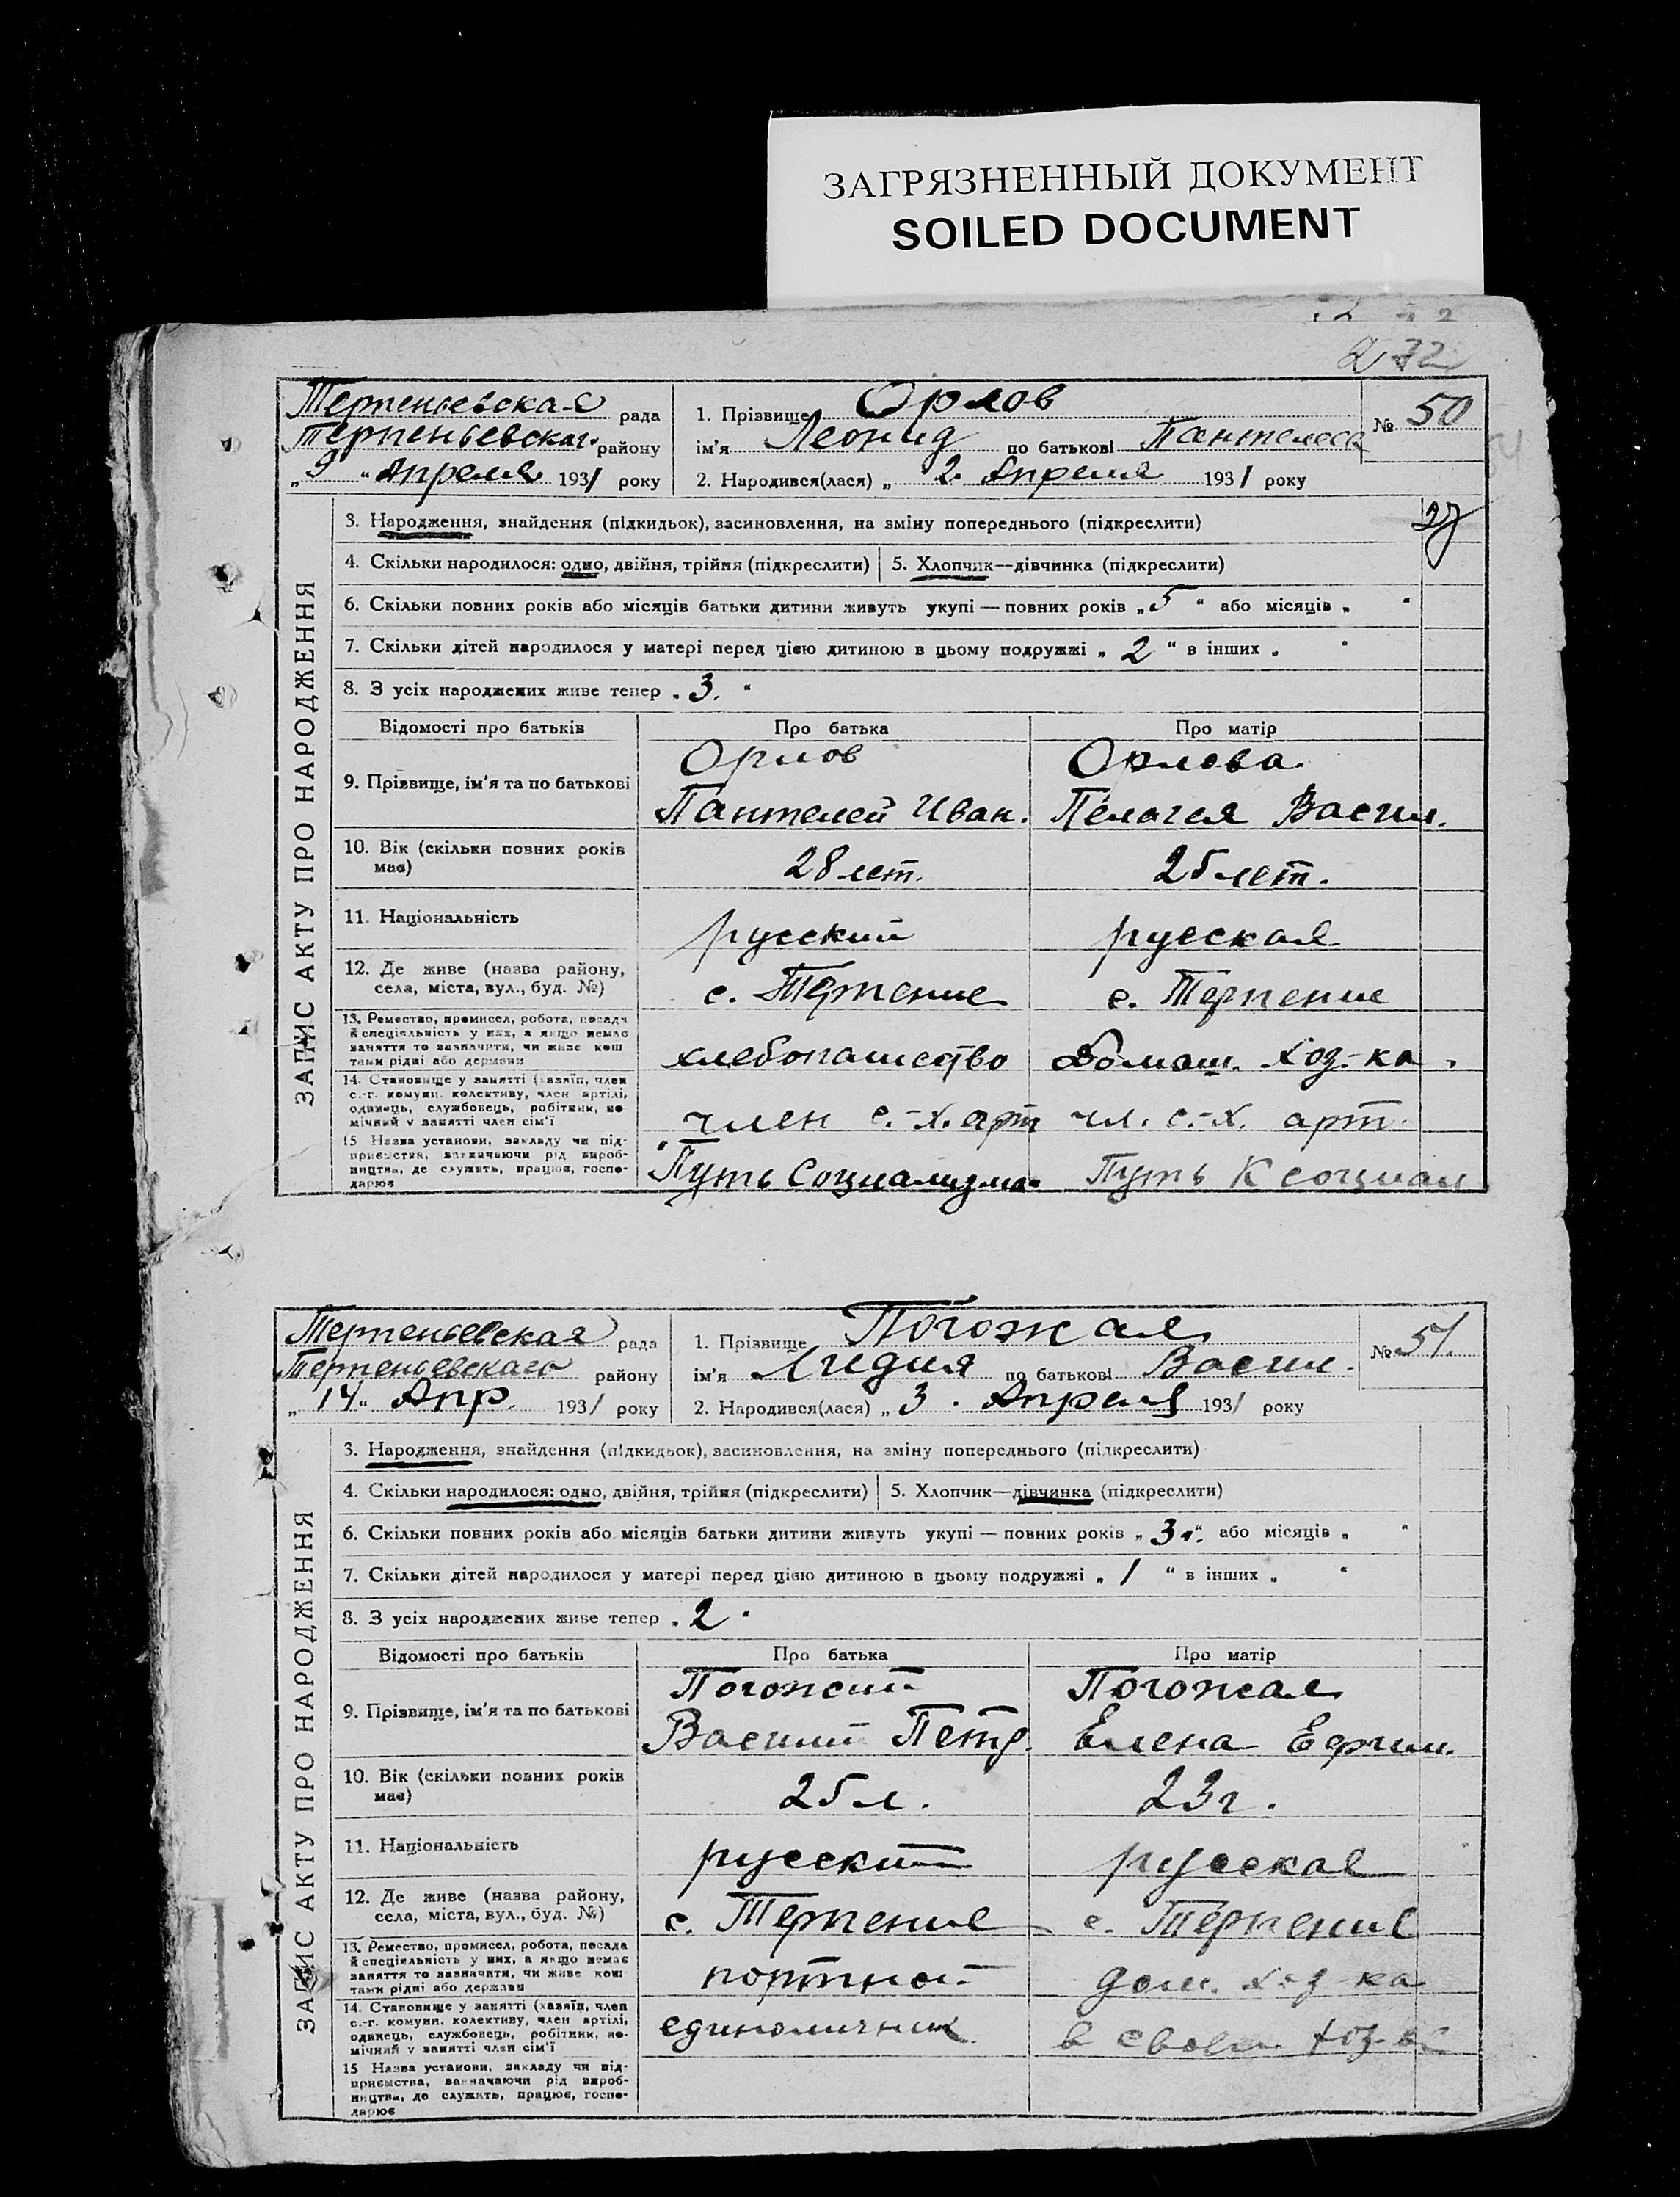 ЗАГРЯЗНЕННЫЙ ДОКУМЕНТ
SOILED DOCUMENT
272
Терпеньевская рада
Терпеньевскаг. району
„9“ Апреля 1931 року
1. Прізвище Орлов
ім'я Леонид по батькові Пантелеев
2. Народився(лася) „ 2. Апреля 1931 року
№ 50
27
ЗАПИС АКТУ ПРО НАРОДЖЕННЯ
3. Народження, знайдення (підкидьок), засиновлення, на зміну попереднього (підкреслити)
4. Скільки народилося: одно, двійня, трійня (підкреслити) 5. Хлопчик—дівчинка (підкреслити)
6. Скільки повних років або місяців батьки дитини живуть укупі — повних років „5“ або місяців „ “
7. Скільки дітей народилося у матері перед цією дитиною в цьому подружжі „2“ в інших „ “
8. З усіх народжених живе тепер „3.“
Відомості про батьків Про батька Про матір
9. Прізвище, ім'я та по батькові
Орлов
Пантелей Иван.
Орлова
Пелагея Васил.
10. Вік (скільки повних років має)
28 лет.
25 лет.
11. Національність
русский
русская
12. Де живе (назва району,
села, міста, вул., буд. №)
с. Терпение
с. Терпение
13. Ремество, промисел, робота, посада
й спеціяльність у них, а якщо немає
заняття то зазначити, чи живе кош
тами рідні або держави
хлебопашество
Домаш. хоз-ка
14. Становище у занятті (хазяїн, член
с.-г. комуни, колективу, член артілі,
одинець, службовець, робітник, по
мічний у занятті член сім'ї
член с.-х. арт
чл. с.-х. арт.
15 Назва установи, закладу чи під-
приємства, зазначаючи рід вироб-
ництва, де служить, працює, госпо-
дарює
"Путь Социализма"
Путь К социал
Терпеньевская рада
Терпеньевскаго району
„14“ Апр. 1931 року
1. Прізвище Погожая
ім'я Лидия по батькові Васил.
2. Народився(лася) „3. Апреля 1931 року
№ 51.
ЗАПИС АКТУ ПРО НАРОДЖЕННЯ
3. Народження, знайдення (підкидьок), засиновлення, на зміну попереднього (підкреслити)
4. Скільки народилося: одно, двійня, трійня (підкреслити) 5. Хлопчик—дівчинка (підкреслити)
6. Скільки повних років або місяців батьки дитини живуть укупі — повних років „3“ або місяців „ “
7. Скільки дітей народилося у матері перед цією дитиною в цьому подружжі „1“ в інших „ “
8. З усіх народжених живе тепер „2“
Відомості про батьків Про батька Про матір
9. Прізвище, ім'я та по батькові
Погожий
Василий Петр.
Погожая
Елена Ефим.
10. Вік (скільки повних років має)
25 л.
23 г.
11. Національність
русский
русская
12. Де живе (назва району,
села, міста, вул., буд. №)
с. Терпение
с. Терпение
13. Ремество, промисел, робота, посада
й спеціяльність у них, а якщо немає
заняття то зазначити, чи живе кош
тами рідні або держави
портной
дом. хоз-ка
14. Становище у занятті (хазяїн, член
с.-г. комуни, колективу, член артілі,
одинець, службовець, робітник, по
мічний у занятті член сім'ї
единоличник
в своем хоз-ве
15 Назва установи, закладу чи під-
приємства, зазначаючи рід вироб-
ництва, де служить, працює, госпо-
дарює